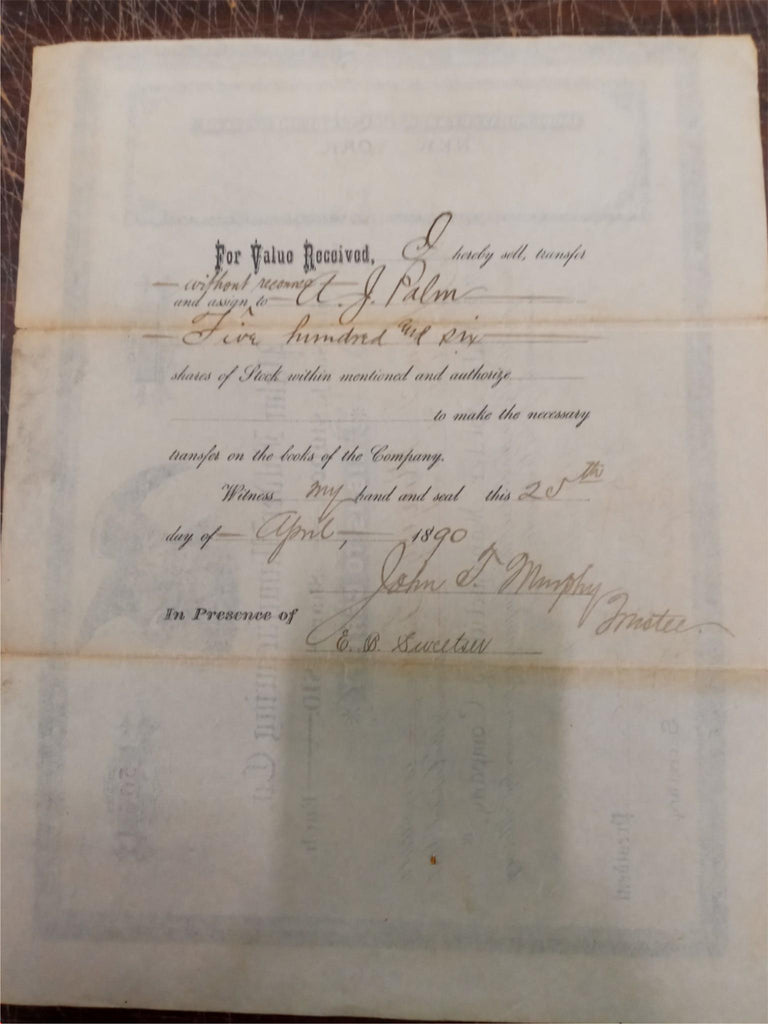 For Value Received, I hereby sell, transfer
without recourse
and assign to A. J. Palm
Five hundred and six
shares of Stock within mentioned and authorize
to make the necessary
transfer on the books of the Company.
Witness my hand and seal this 25th
day of April, 1890
John T. Murphy
Trustee
In Presence of
E. B. Sweetser